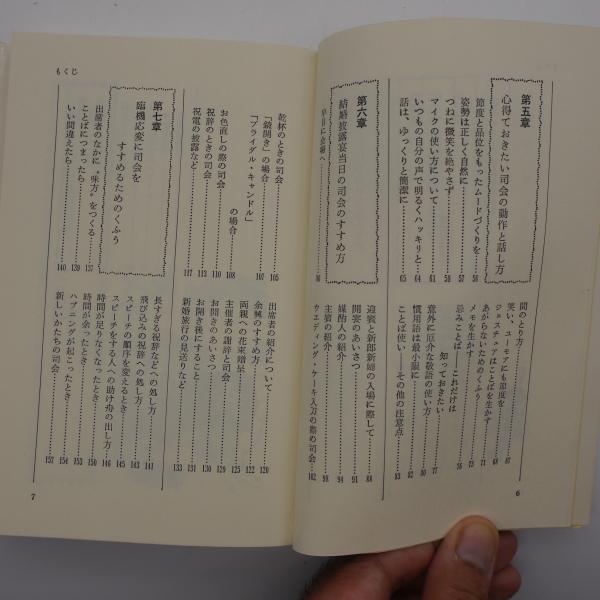 第五章
心得ておきたい司会の動作と話し方
節度と品位をもったムードづくりを……56
姿勢は正しく自然に……57
つねに微笑を絶やさず……58
マイクの使い方について……61
いつもの自分の声で明るくハッキリと……64
話は、ゆっくりと簡潔に……65
間のとり方……67
笑い、ユーモアにも節度を……68
ジェスチュアはことばを生かす……71
あがらないためのくふう……73
メモを生かす……
忌みことば——これだけは
知っておきたい……77
意外に厄介な敬語の使い方……80
慣用語は最小限に……82
ことば使い——その他の注意点……83
第六章
結婚披露宴当日の司会のすすめ方
早目に会場へ……86
迎賓と新郎新婦の入場に際して……88
開宴のあいさつ……91
媒酌人の紹介……94
主賓の紹介……98
ウエディング・ケーキ入刀の際の司会……102
6
もくじ
乾杯のときの司会……105
「鏡開き」の場合……107
「ブライダル・キャンドル」
の場合……108
お色直しの際の司会……110
祝辞のときの司会……113
祝電の披露など……117
出席者の紹介について……120
余興のすすめ方……122
両親への花束贈呈……125
主催者の謝辞と司会……129
お開きのあいさつ……130
お開き後にすること……131
新婚旅行の見送りなど……133
第七章
臨機応変に司会を
すすめるためのくふう
出席者のなかに〝味方〟をつくる……137
ことばにつまったら……139
いい間違えたら……140
長すぎる祝辞などへの処し方……141
飛び込みの祝辞への処し方……143
スピーチの順序を変えるとき……145
スピーチをする人への助け舟の出し方……146
時間が足りなくなったとき……150
時間が余ったとき……153
ハプニングが起こったとき……154
新しいかたちの司会……157
7